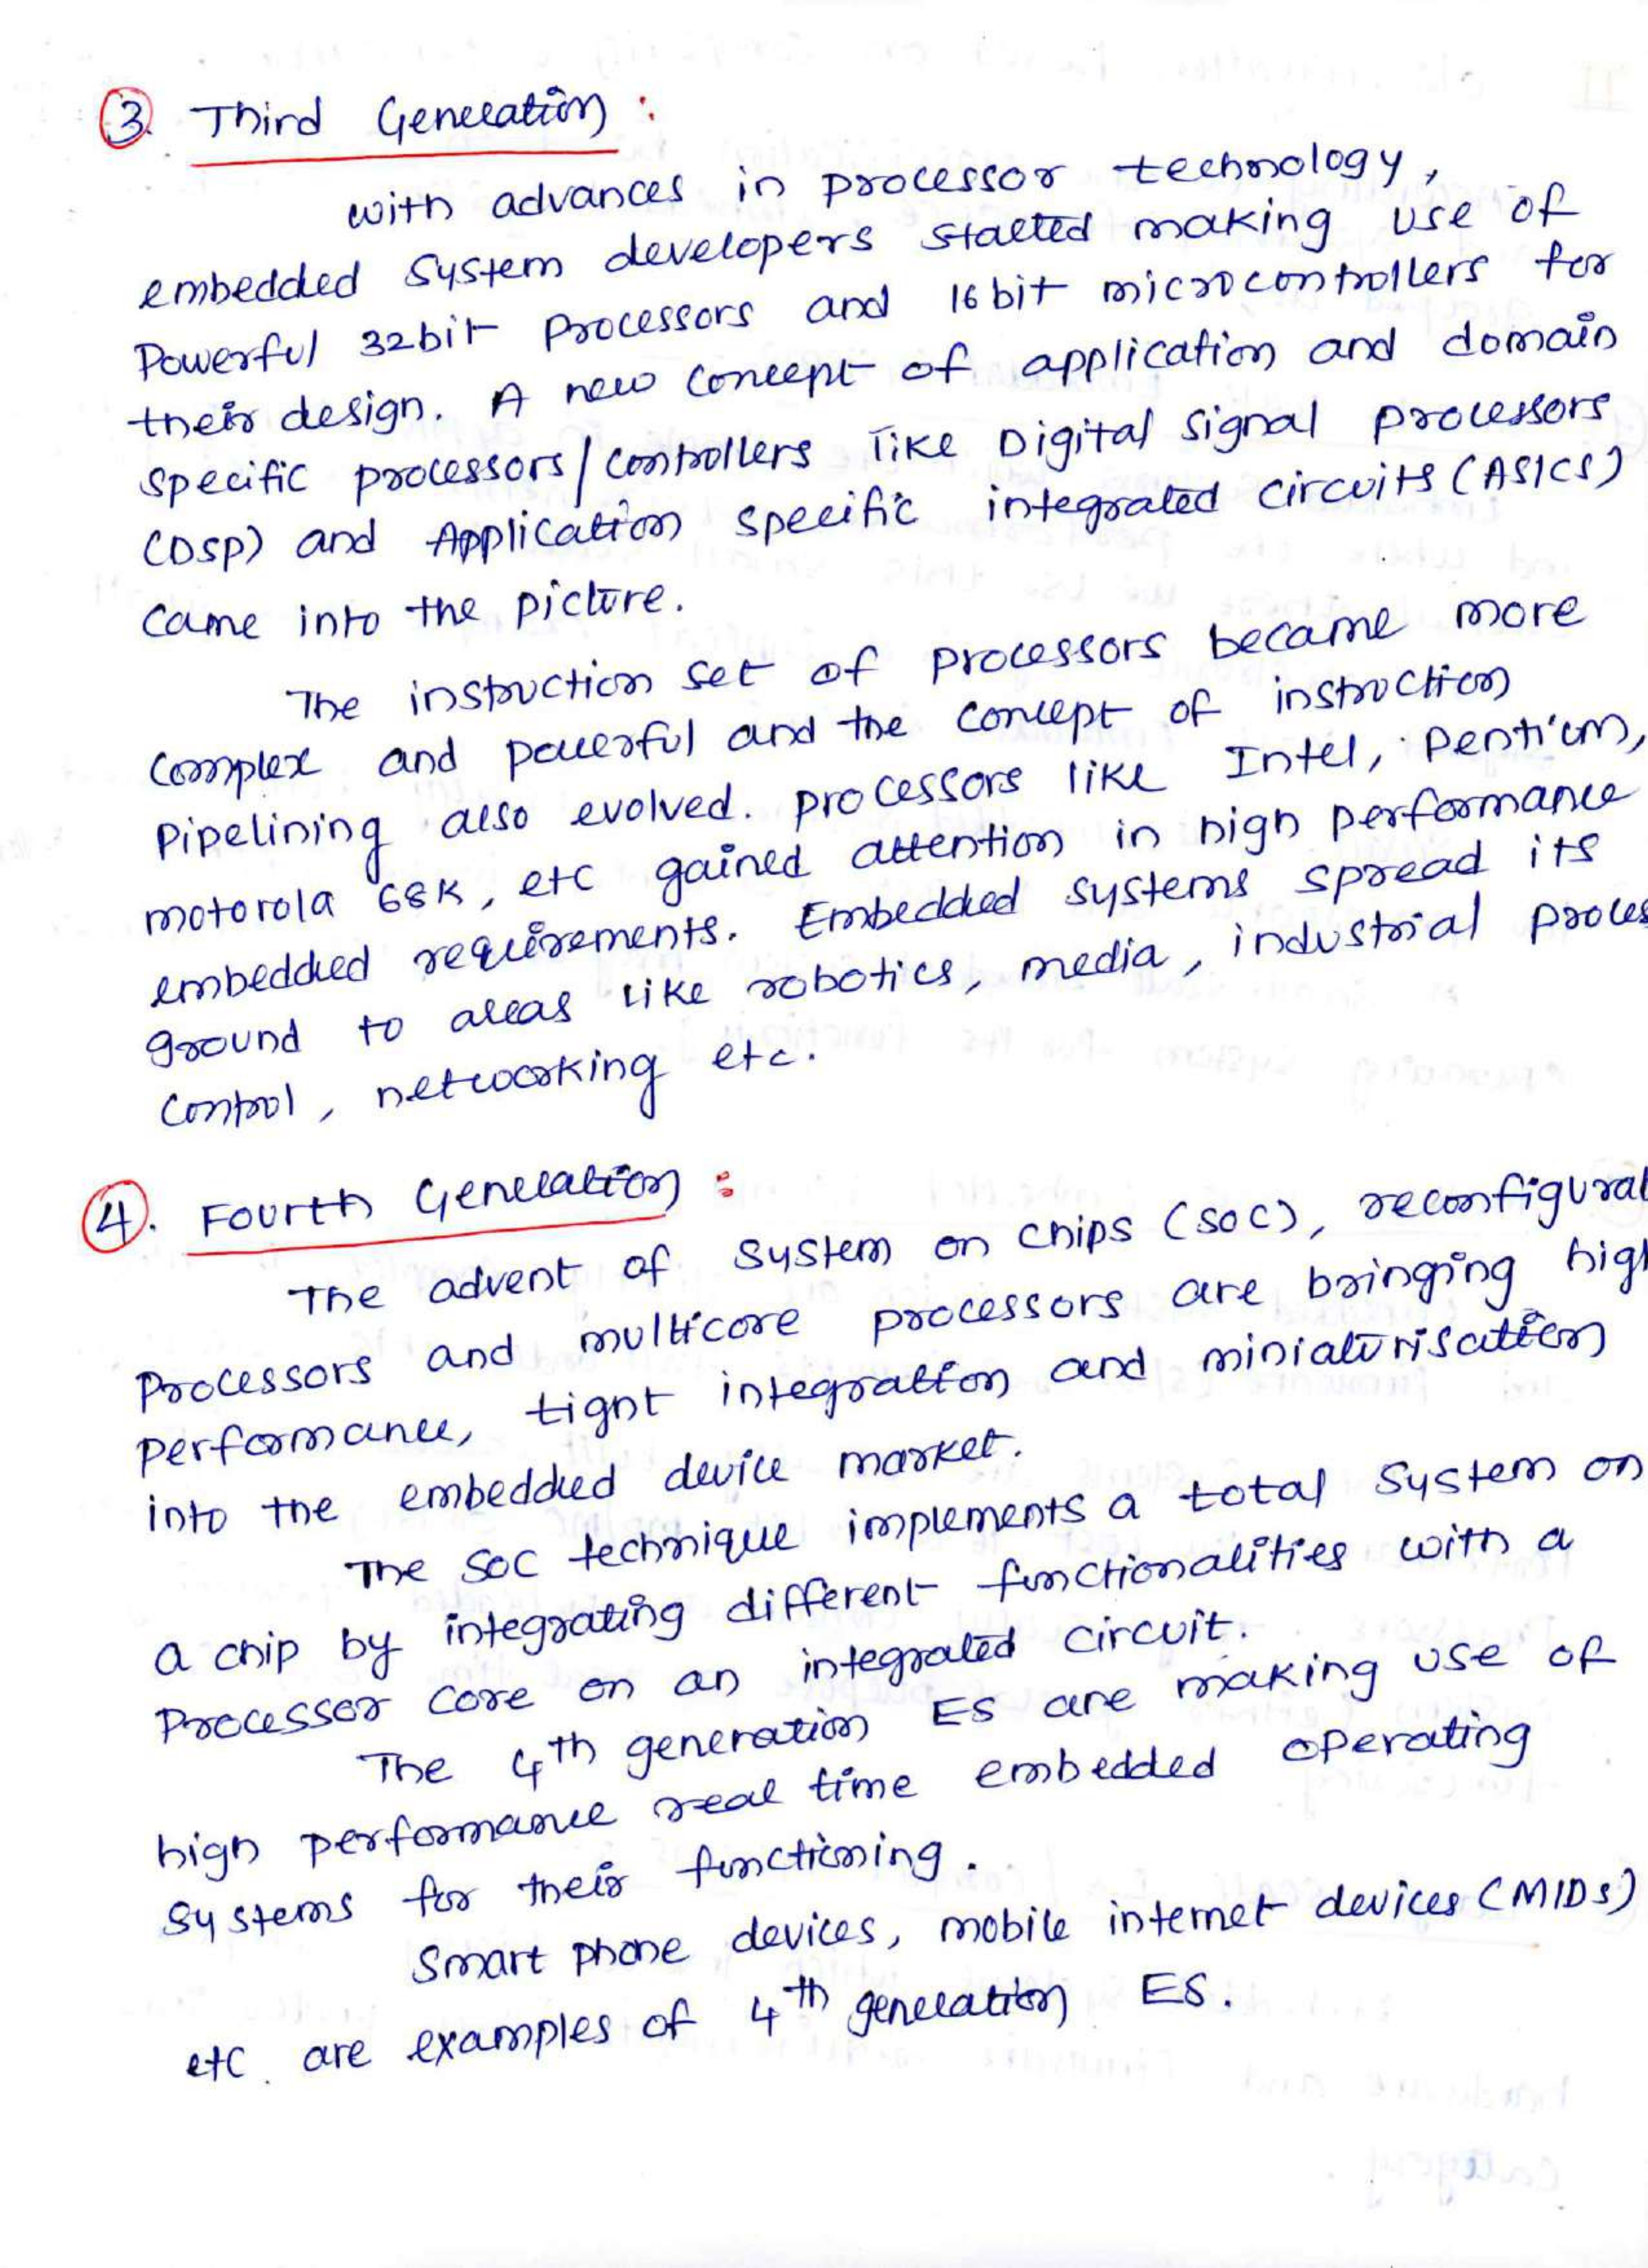 3. Third Generation :
with advances in processor technology,
embedded system developers started making use of
Powerful 32bit Processors and 16 bit microcontrollers for
their design. A new concept of application and domain
specific processors/controllers like Digital signal processors
(DSP) and Application specific integrated circuits (ASICS)
came into the picture.
The instruction set of processors became more
complex and powerful and the concept of instruction
Pipelining also evolved. processors like Intel, Pentium,
motorola 68K, etc gained attention in high performance
embedded requirements. Embedded systems spread its
ground to areas like robotics, media, industrial proces
control, networking etc.
4. Fourth Generation :
The advent of system on chips (SOC), reconfigural
Processors and multicore processors are bringing high
performance, tight integration and miniaturisation
into the embedded device market.
The SOC technique implements a total system on
a chip by integrating different functionalities with a
Processor core on an integrated circuit.
The 4th generation ES are making use of
high performance real time embedded operating
systems for their functioning.
Smart phone devices, mobile internet devices (MIDs)
etc. are examples of 4th generation ES.